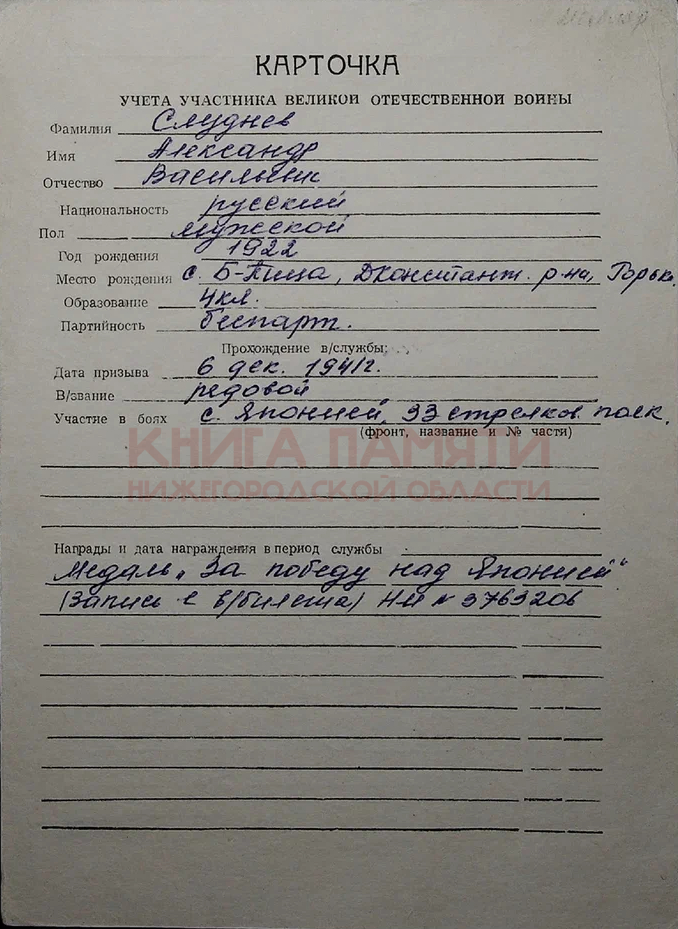 КАРТОЧКА
УЧЕТА УЧАСТНИКА ВЕЛИКОЙ ОТЕЧЕСТВЕННОЙ ВОЙНЫ
Фамилия Слуднев
Имя Александр
Отчество Васильевич
Национальность русский
Пол мужской
Год рождения 1922
Место рождения с. Б-Пица, Дконстант. р-на, Горьк.
Образование 4кл.
Партийность беспарт.
Прохождение в/службы:
Дата призыва 6 дек. 1941г.
В/звание редовой
Участие в боях с Японией, 33 стрелков полк.
(фронт, название и № части)
КНИГА ПАМЯТИ
НИЖЕГОРОДСКОЙ ОБЛАСТИ
Награды и дата награждения в период службы
Медаль „За победу над Японией"
(Запись с в/билета) НИ № 3763206